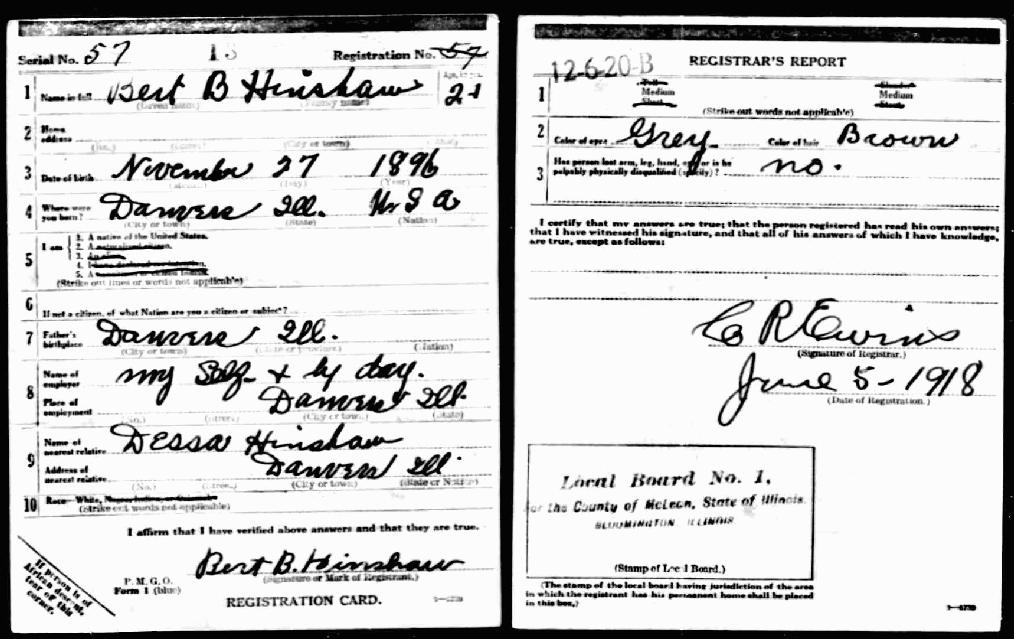 Serial No. 57 13 Registration No. 57
1 Name in full Bert B Hinshaw 21
(Given name) (Family name)
2 Home address
(No.) (Street) (City or town) (State)
3 Date of birth November 27 1896
(Month) (Day) (Year)
4 Where were you born? Danvers Ill. U S A
(City or town) (State) (Nation)
5 I am
1. A native of the United States.
2. A naturalized citizen.
3. An alien.
4. I have declared my intention.
5. A
(Strike out lines or words not applicable)
6 If not a citizen, of what Nation are you a citizen or subject?
7 Father's birthplace Danvers Ill.
(City or town) (State or province) (Nation)
8 Name of employer my Self - & by day.
Place of employment Danvers Ill.
(No.) (Street) (City or town) (State)
9 Name of nearest relative Dessa Hinshaw
Address of nearest relative Danvers Ill
(No.) (Street) (City or town) (State or Nation)
10 Race—White,
(Strike out words not applicable)
I affirm that I have verified above answers and that they are true.
Bert B. Hinshaw
(Signature or Mark of Registrant.)
P. M. G. O.
Form 1 (blue)
REGISTRATION CARD.
If person is of
African descent,
tear off this
corner.
12-6-20-B REGISTRAR'S REPORT
1 Tall Slender
Medium Medium
Short Stout
(Strike out words not applicable)
2 Color of eyes Grey Color of hair Brown
3 Has person lost arm, leg, hand, or is he
palpably physically disqualified (specify)? no.
I certify that my answers are true; that the person registered has read his own answers;
that I have witnessed his signature, and that all of his answers of which I have knowledge,
are true, except as follows:
C R Ewins
(Signature of Registrar.)
June 5-1918
(Date of Registration.)
Local Board No. 1,
for the County of McLean, State of Illinois.
BLOOMINGTON ILLINOIS
(Stamp of Local Board.)
(The stamp of the local board having jurisdiction of the area
in which the registrant has his permanent home shall be placed
in this box.)